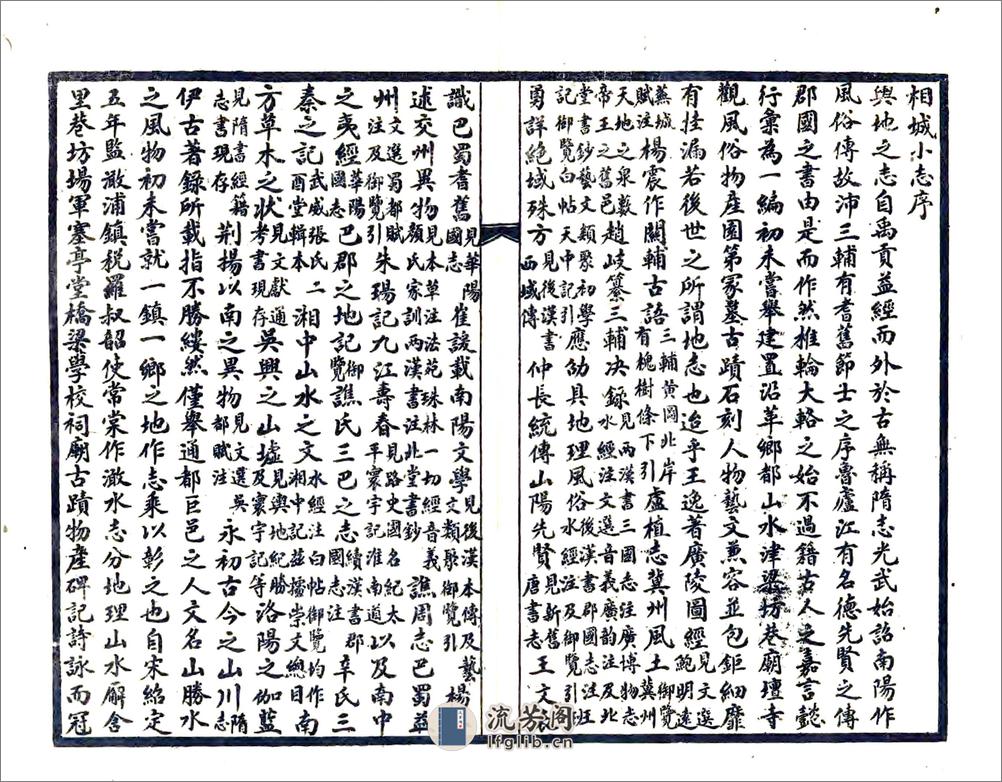 相城小志序
輿地之志自禹貢益經而外於古無稱隋志光武始詔南陽作
風俗傳故沛三輔有耆舊節士之序魯廬江有名德先賢之傳
郡國之書由是而作然推輪大輅之始不過籍古人之嘉言懿
行彙為一編初未嘗舉建置沿革鄉都山水津梁坊巷廟壇寺
觀風俗物產園第冢墓古蹟石刻人物藝文兼容並包鉅細靡
有挂漏若後世之所謂地志也迨乎王逸著廣陵圖經見文選鮑明遠
蕪城賦注楊震作關輔古語三輔黃圖北岸有槐樹條下引盧植志冀州風土御覽冀州
天地之泉數趙岐纂三輔決錄見兩漢書三國志注廣博物志水經注文選音義廣韻注及北
堂書鈔藝文類聚初學記御覽白帖天中記引應劭具地理風俗後漢書郡國志注水經注及御覽引
勇詳絕域殊方見後漢書西域傳仲長統傳山陽先賢見新舊唐書志王文
識巴蜀書舊見華陽國志崔諼載南陽文學見後漢本傳及藝文類聚御覽引楊
述交州異物見本草注法苑珠林一切經音義顏氏家訓兩漢書注北堂書鈔譙周志巴蜀益
州文選蜀都賦注及御覽引朱瑒記九江壽春見路史國名紀太平寰宇記淮南道以及南中
之夷經華陽國志巴郡之地記御覽譙氏三巴之志續漢書郡國志注辛氏三
秦之記武威張氏二酉堂輯本湘中山水之文水經注白帖御覽均作湘中記茲據崇文總目南
方草木之狀見文獻通考書現存吳興之山墟見輿地紀勝及寰宇記等洛陽之伽藍
見隋書經籍志書現存荊揚以南之異物見文選吳都賦注永初古今之山川隋志
伊古著錄所載指不勝縷然僅舉通都巨邑之人文名山勝水
之風物初未嘗就一鎮一鄉之地作志乘以彰之也自宋紹定
五年監澉浦鎮稅羅叔韶使常棠作澉水志分地理山水廨舍
里巷坊場軍寨亭堂橋梁學校祠廟古蹟物產碑記詩詠而冠
流芳阁
lfglib.cn